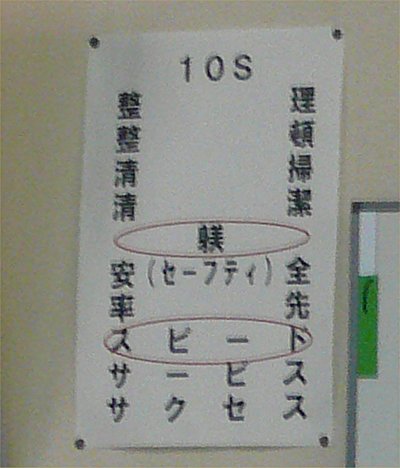 10S
整理
整頓
清掃
清潔
躾
安全(セーフティ)
率先
スピード
サービス
サクセス